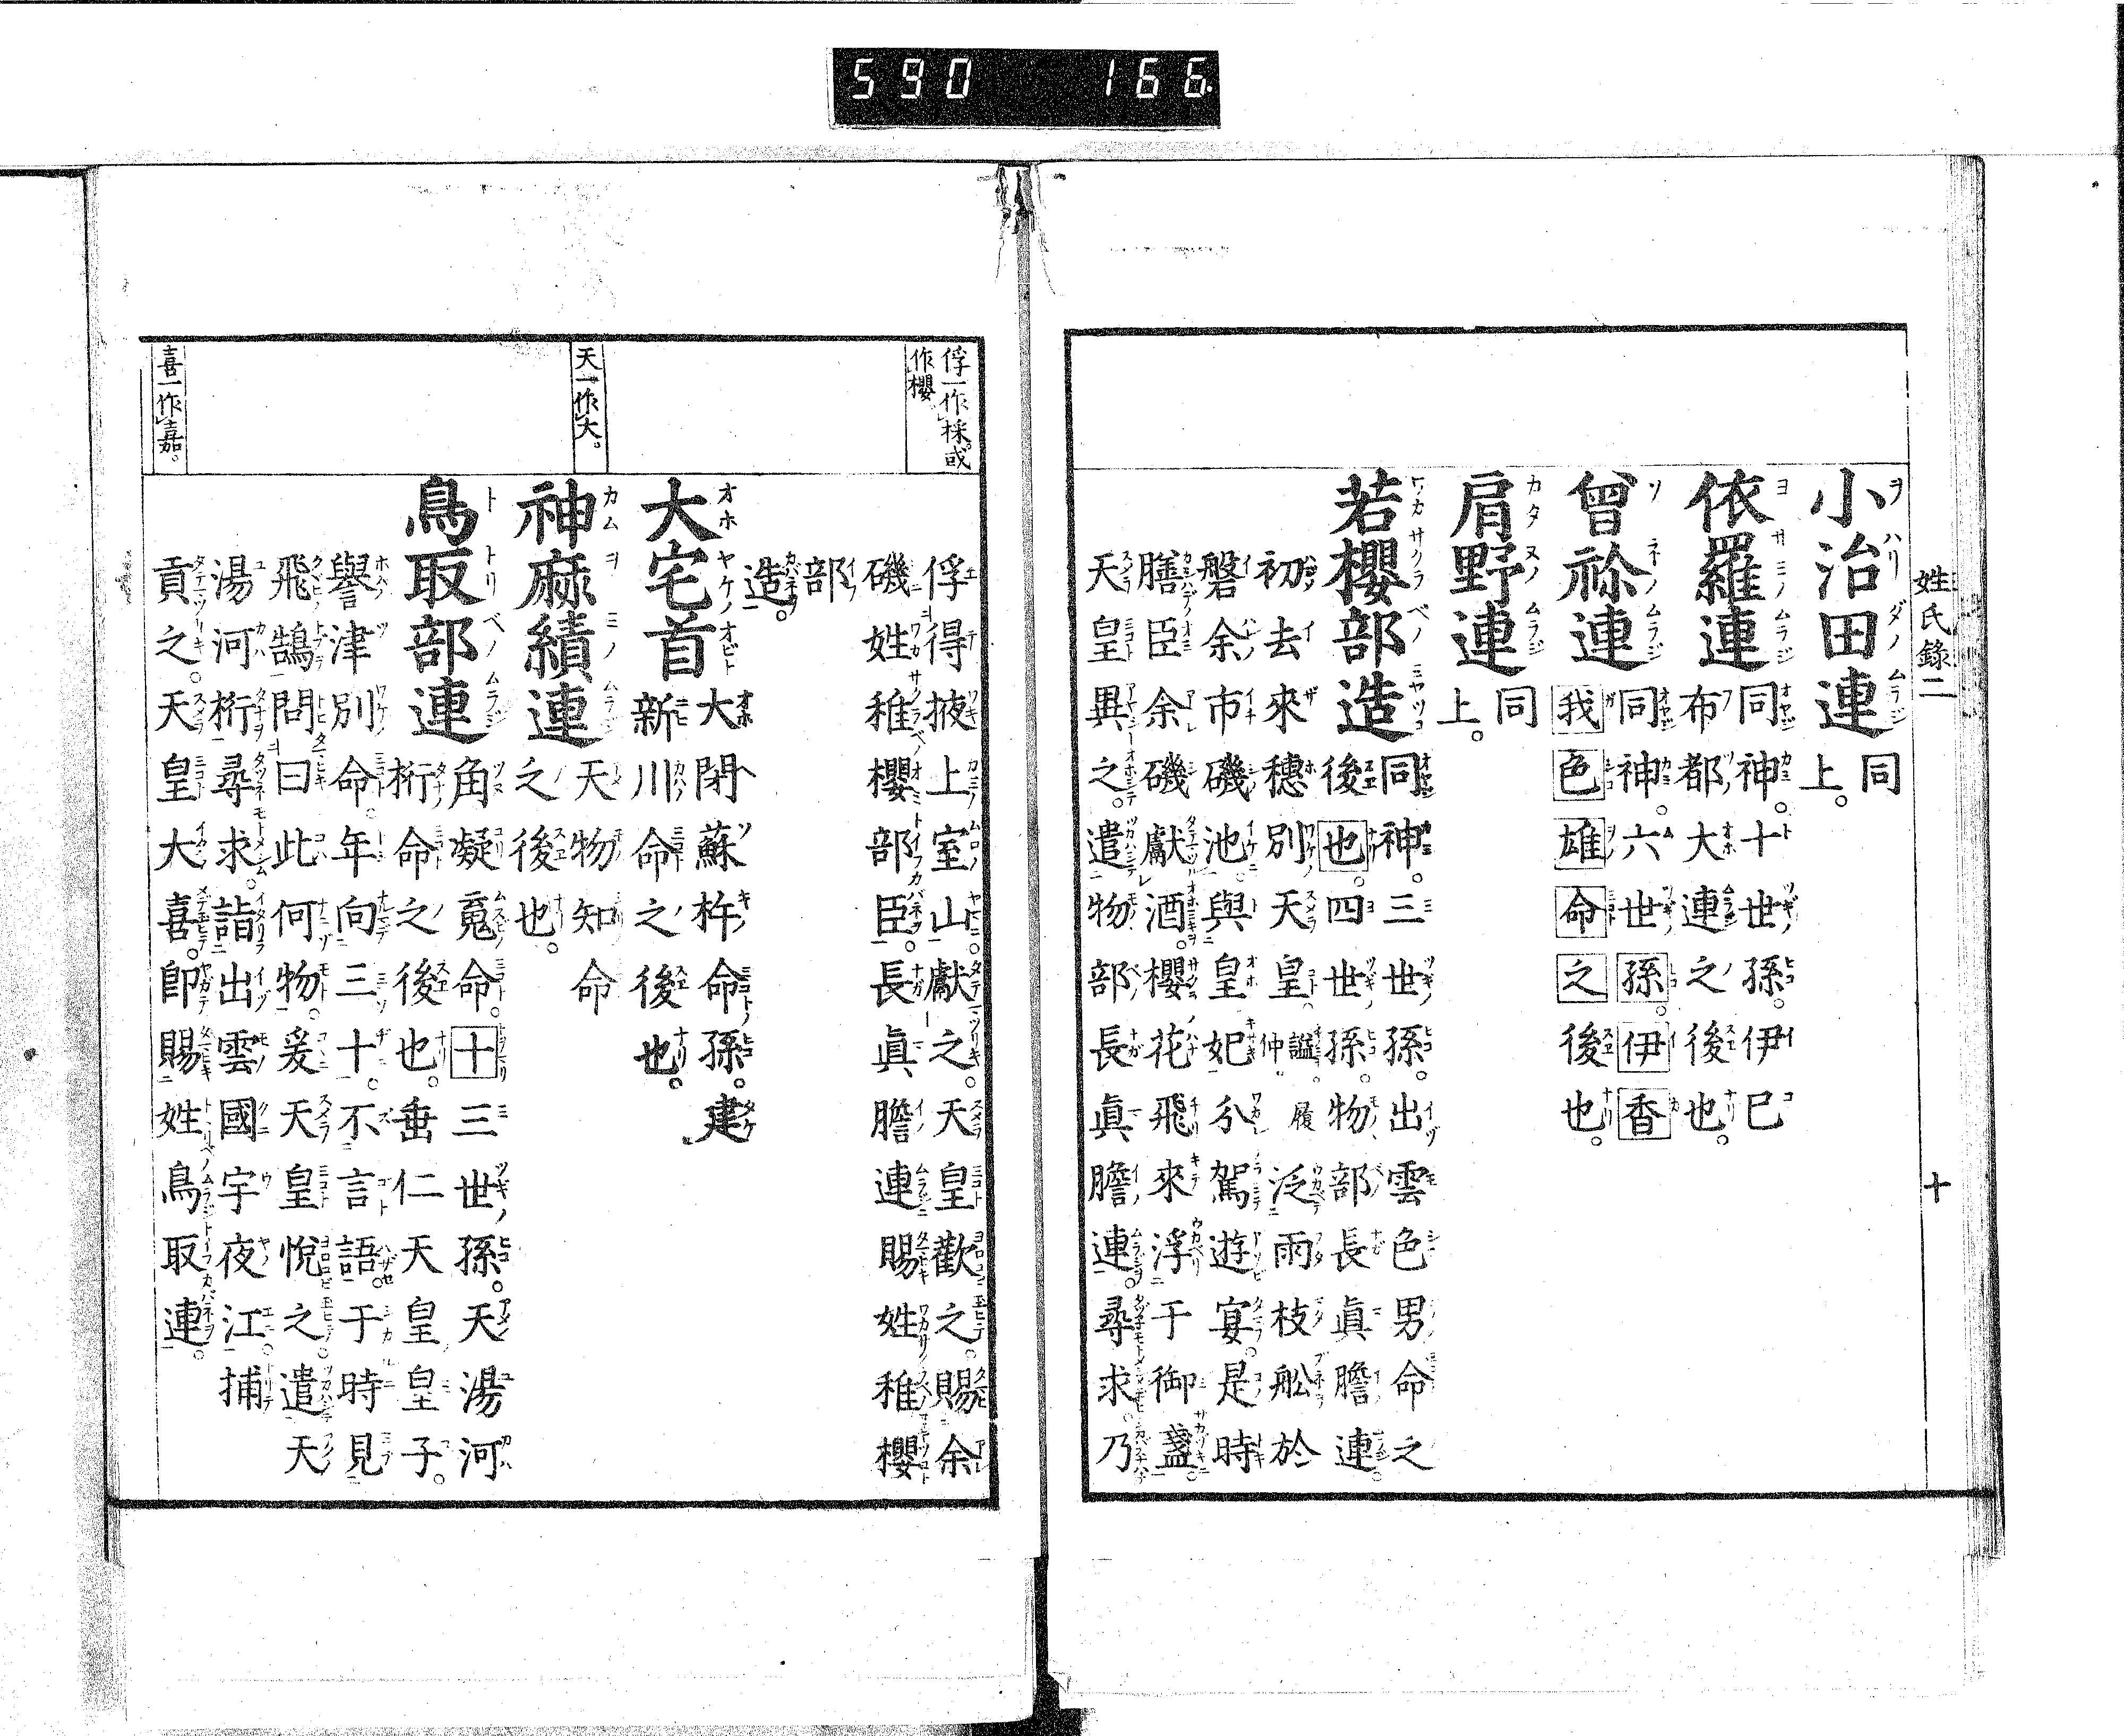 590 166
姓氏錄二
十
小治田連同上。
依羅連同神。十世孫。伊巳
布都大連之後也。
曾祢連同神。六世孫。伊香
我色雄命之後也。
肩野連同上。
若櫻部造同神。三世孫。出雲色男命之
後也。四世孫。物部長眞膽連。
初去來穗別天皇。謚履仲。泛兩枝舩於
磐余市磯池。與皇妃分駕遊宴。是時
膳臣余磯獻酒。櫻花飛來浮于御盞。
天皇異之。遣物部長眞膽連。尋求。乃
俘一作採。或
作櫻
俘得掖上室山。獻之。天皇歡之。賜余
磯姓稚櫻部臣。長眞膽連賜姓稚櫻
部
造。
大宅首大閇蘇杵命孫。建
新川命之後也。
天一作大。
神麻績連天物知命
之後也。
鳥取部連角凝䰟命。十三世孫。天湯河
桁命之後也。垂仁天皇皇子。
譽津別命。年向三十。不言語。于時見
飛鵠。問曰此何物。爰天皇悅之。遣天
湯河桁尋求。詣出雲國宇夜江。捕
貢之。天皇大喜。卽賜姓鳥取連。
喜一作嘉。